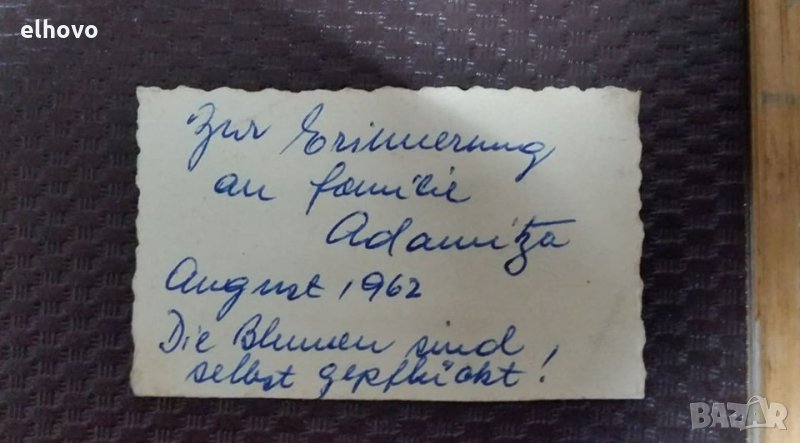 elhovo
Zur Erinnerung
an Familie
Adamitza
August 1962
Die Blumen sind
selbst gepflückt!
BAZAR